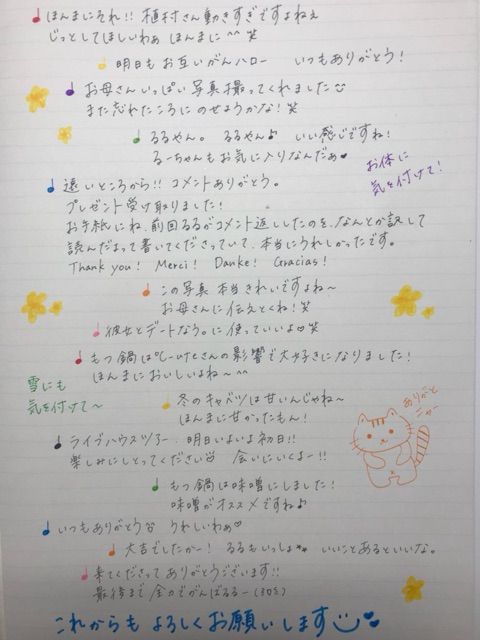 ほんまにそれ!! 植村さん動きすぎですよねぇ
じっとしてほしいわぁ ほんまに^^笑
明日もお互いがんハロー いつもありがとう!
お母さんいっぱい写真撮ってくれました
また忘れたころにのせようかな!笑
るるやん。 るるやん♪ いい感じですね!
るーちゃんもお気に入りなんだぁ♥
お体に
気を付けて!
遠いところから!! コメントありがとう。
プレゼント受け取りました!
お手紙にね、前回るるがコメント返ししたのを、なんとか訳して
読んだよって書いてくださっていて、本当にうれしかったです。
Thank you! Merci! Danke! Gracias!
この写真本当きれいですよね〜
お母さんに伝えとくね!笑
彼女とデートなう。に使っていいよ♡笑
もつ鍋は℃-uteさんの影響で大好きになりました!
ほんまにおいしいよね〜^^
雪にも
気を付けて〜
冬のキャベツは甘いんじゃね〜
ほんまに甘かったもん!
ありがと
ニャー
ライブハウスツアー、明日いよいよ初日!!
楽しみにしとってください 会いにいくよー!!
もつ鍋は味噌にしました!
味噌がオススメですね♪
いつもありがとう うれしいわぁ♡
大吉でしたかー! るるもいっしょ いいことあるといいな。
来てくださってありがとうございます!!
最後まで全力でがんばるるー(30?)
これからも よろしくお願いします